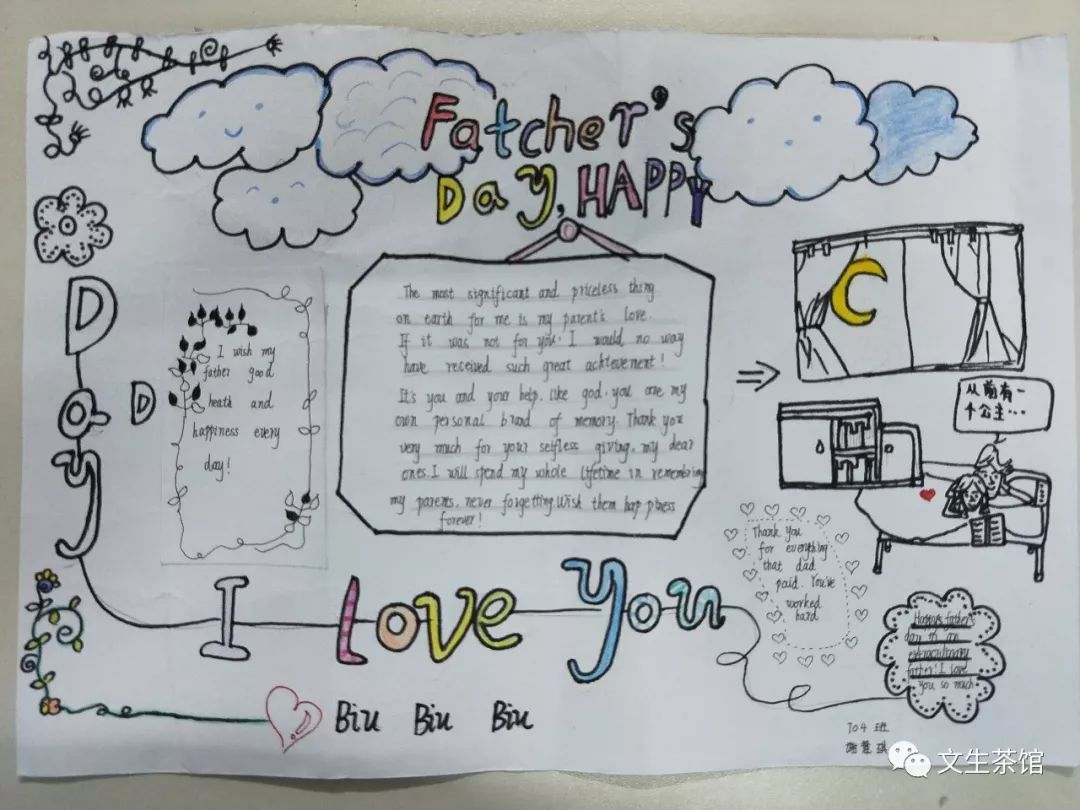 Fatcher's
Day, HAPPY
Day
D
I wish my
father good
heath and
happiness every
day!
The most significant and priceless thing
on earth for me is my parent's love.
If it was not for you! I would no way
have received such great achievement!
It's you and your help, like god, you are my
own personal brand of memory. Thank you
very much for your selfless giving, my dear
ones. I will spend my whole lifetime in remembring
my parents, never forgetting. Wish them happiness
forever!
从前有一
个公主…
Thank You
for everything
that dad
paid. You've
worked
hard
I Love You
Happy father's
day to an
extraordinary
father! I love
you so much
Biu Biu Biu
704 班
谢慧琪
文生茶馆